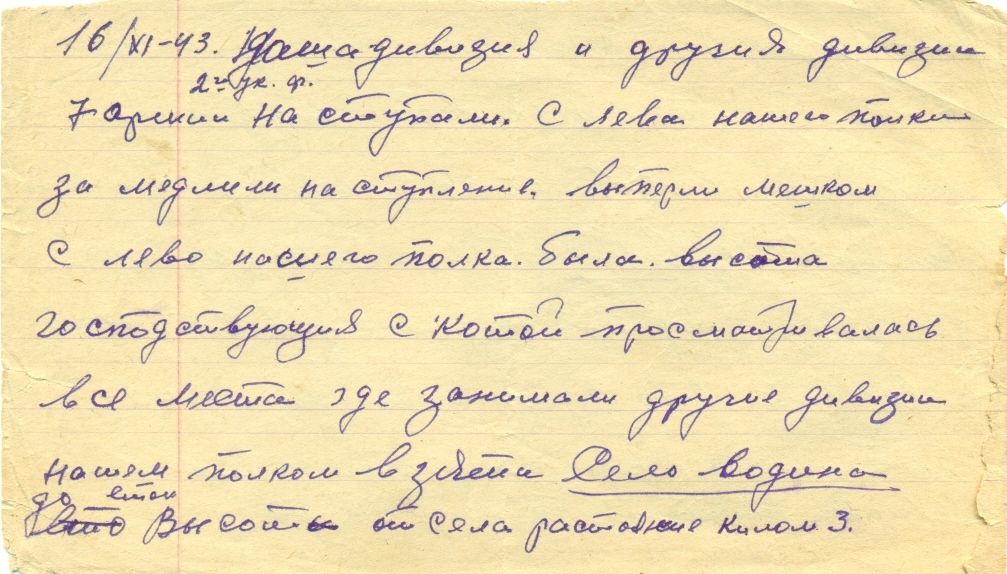 16/XI-43. Наша дивизия и другия дивизии
2го ук. ф.
7 армии На ступали. С лева нашего полка
за медлили на ступление. выперли мешком
С лево нашего полка. была. высота
господствующия с котой просматривалась
все места где занимали другие дивизии
нашем полком взята Село водина
до етой
Высоты от села растояние килом 3.